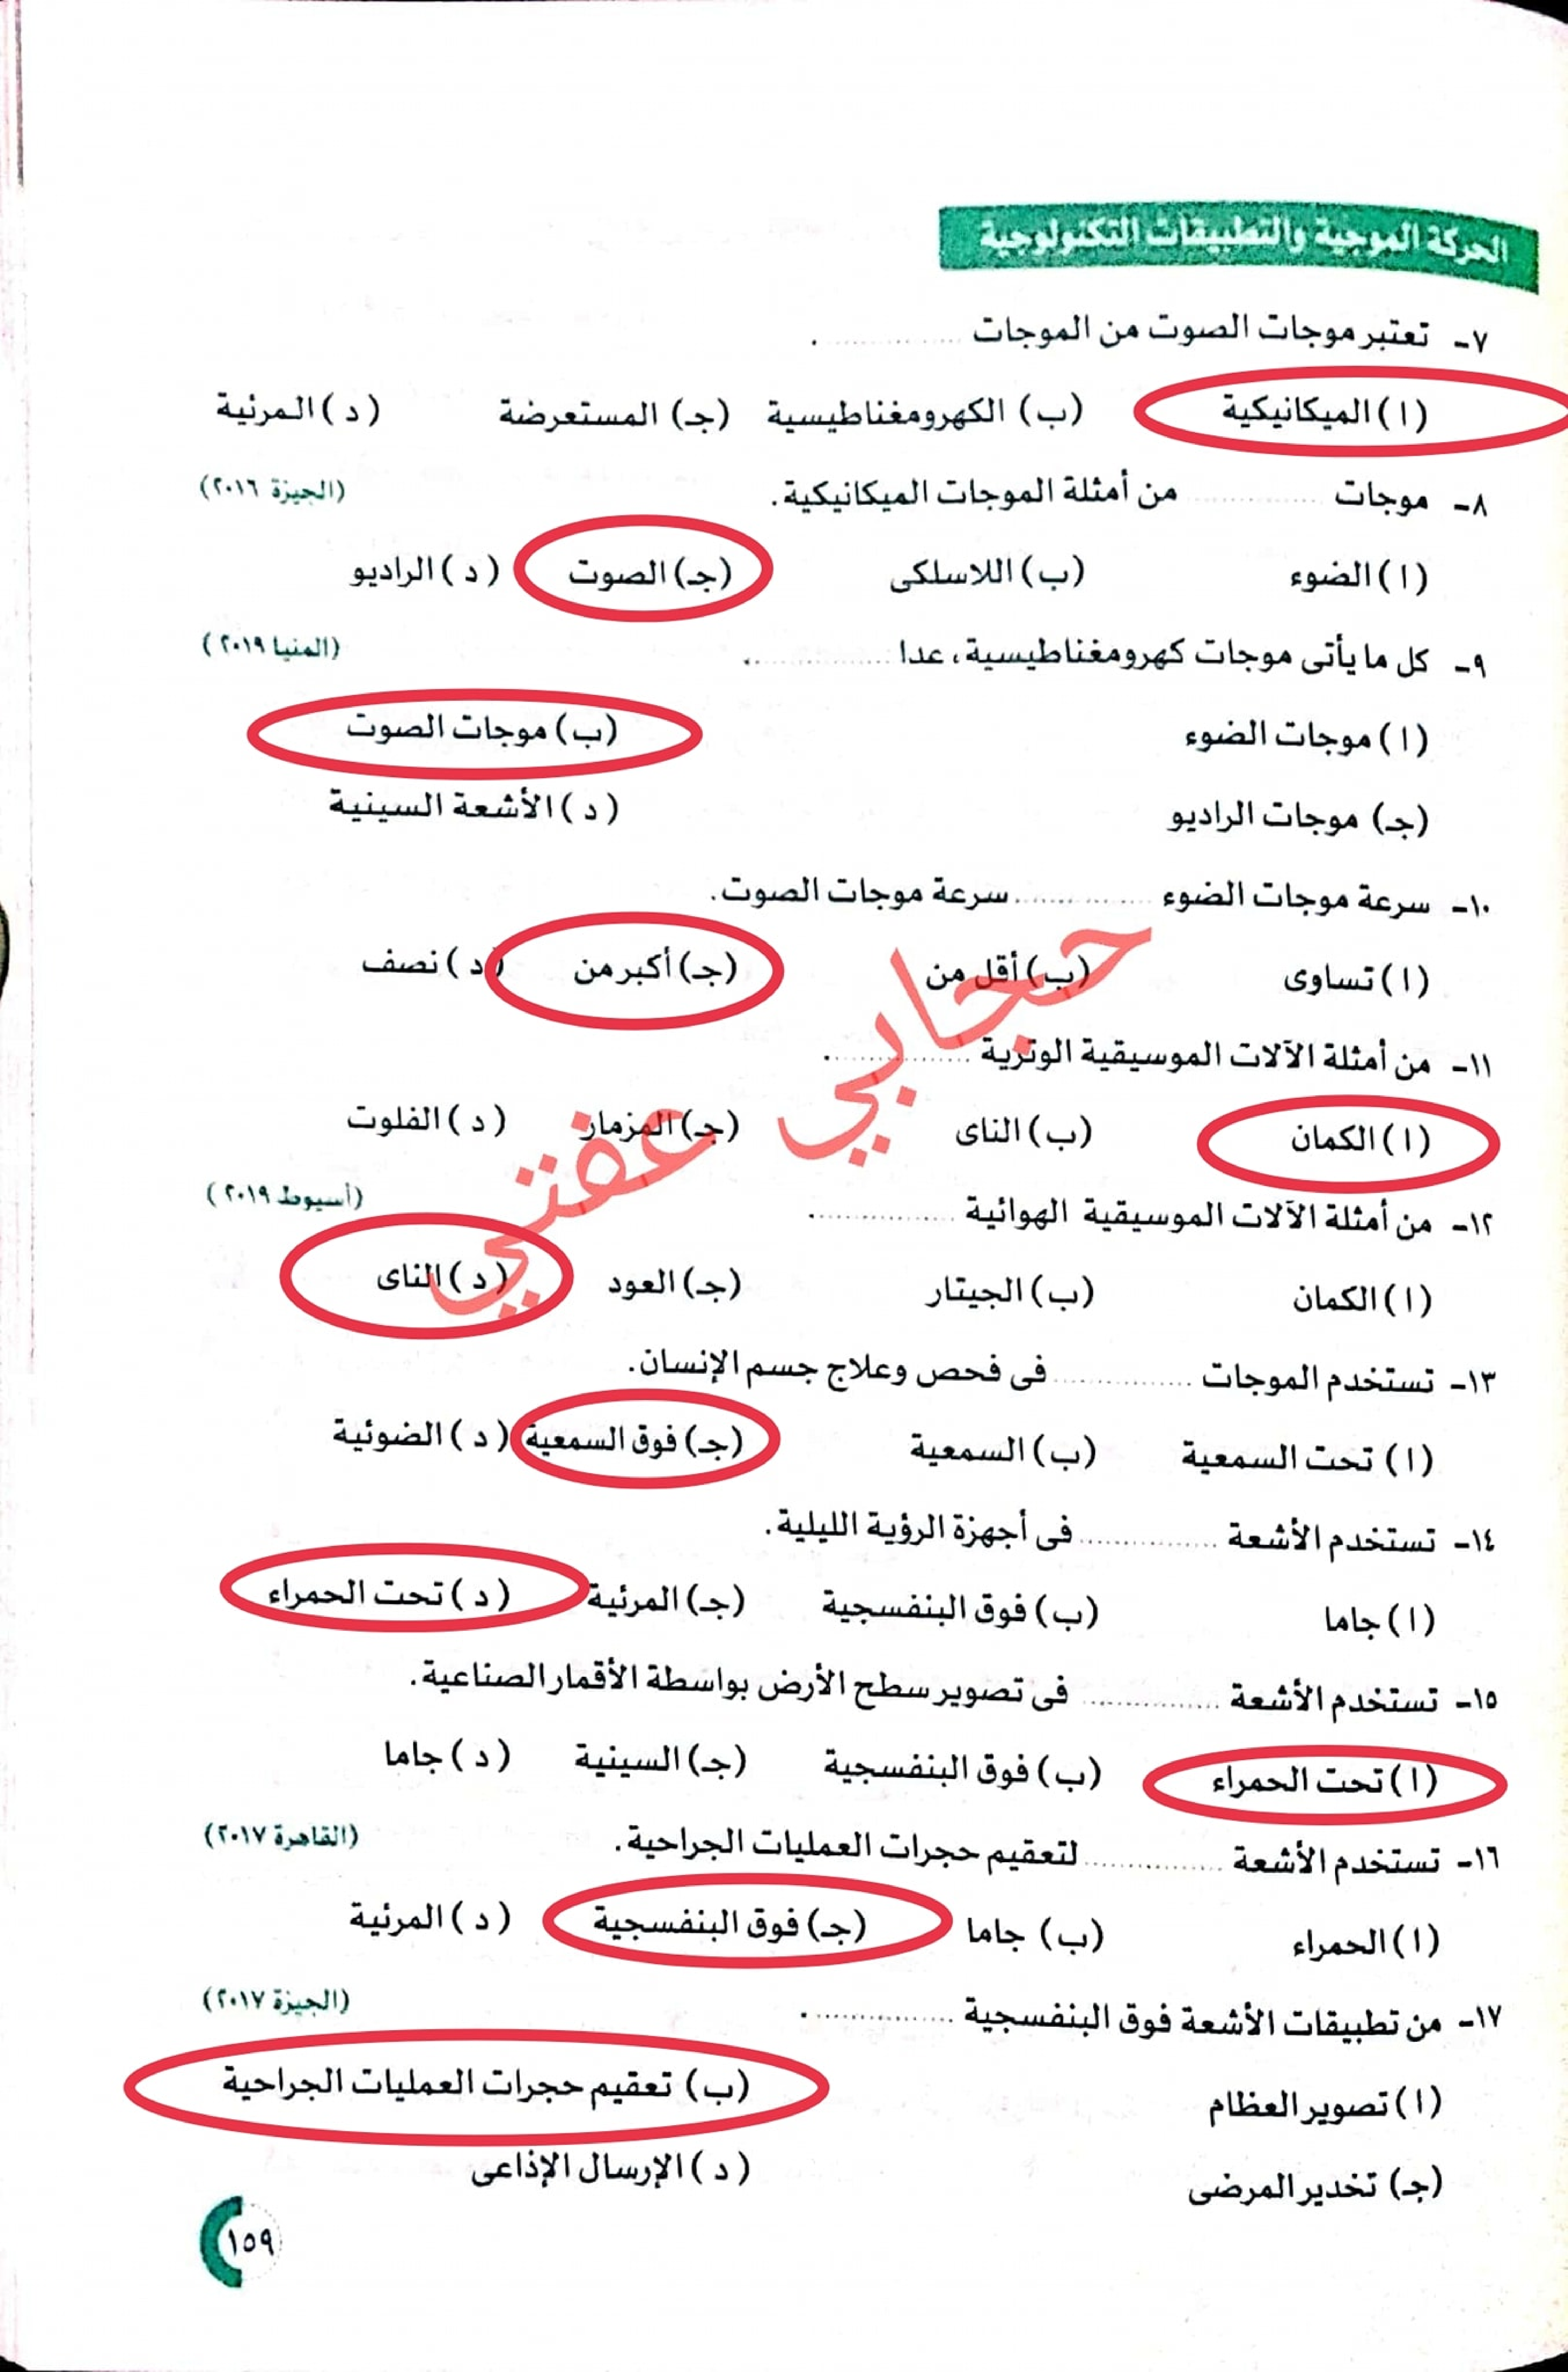 الحركة الموجية والتطبيقات التكنولوجية
٧- تعتبر موجات الصوت من الموجات ............ .
(ا) الميكانيكية (ب) الكهرومغناطيسية (جـ) المستعرضة (د) المرئية
٨- موجات ............ من أمثلة الموجات الميكانيكية. (الجيزة ٢٠١٦)
(ا) الضوء (ب) اللاسلكى (جـ) الصوت (د) الراديو
٩- كل ما يأتى موجات كهرومغناطيسية، عدا ............ . (المنيا ٢٠١٩)
(ا) موجات الضوء (ب) موجات الصوت
(جـ) موجات الراديو (د) الأشعة السينية
١٠- سرعة موجات الضوء ............ سرعة موجات الصوت.
(ا) تساوى (ب) أقل من (جـ) أكبر من (د) نصف
١١- من أمثلة الآلات الموسيقية الوترية ............ .
(ا) الكمان (ب) الناى (جـ) المزمار (د) الفلوت
١٢- من أمثلة الآلات الموسيقية الهوائية ............ . (أسيوط ٢٠١٩)
(ا) الكمان (ب) الجيتار (جـ) العود (د) الناى
١٣- تستخدم الموجات ............ فى فحص وعلاج جسم الإنسان.
(ا) تحت السمعية (ب) السمعية (جـ) فوق السمعية (د) الضوئية
١٤- تستخدم الأشعة ............ فى أجهزة الرؤية الليلية.
(ا) جاما (ب) فوق البنفسجية (جـ) المرئية (د) تحت الحمراء
١٥- تستخدم الأشعة ............ فى تصوير سطح الأرض بواسطة الأقمار الصناعية.
(ا) تحت الحمراء (ب) فوق البنفسجية (جـ) السينية (د) جاما
١٦- تستخدم الأشعة ............ لتعقيم حجرات العمليات الجراحية. (القاهرة ٢٠١٧)
(ا) الحمراء (ب) جاما (جـ) فوق البنفسجية (د) المرئية
١٧- من تطبيقات الأشعة فوق البنفسجية ............ . (الجيزة ٢٠١٧)
(ا) تصوير العظام (ب) تعقيم حجرات العمليات الجراحية
(جـ) تخدير المرضى (د) الإرسال الإذاعى
١٥٩
حجابي عفتي